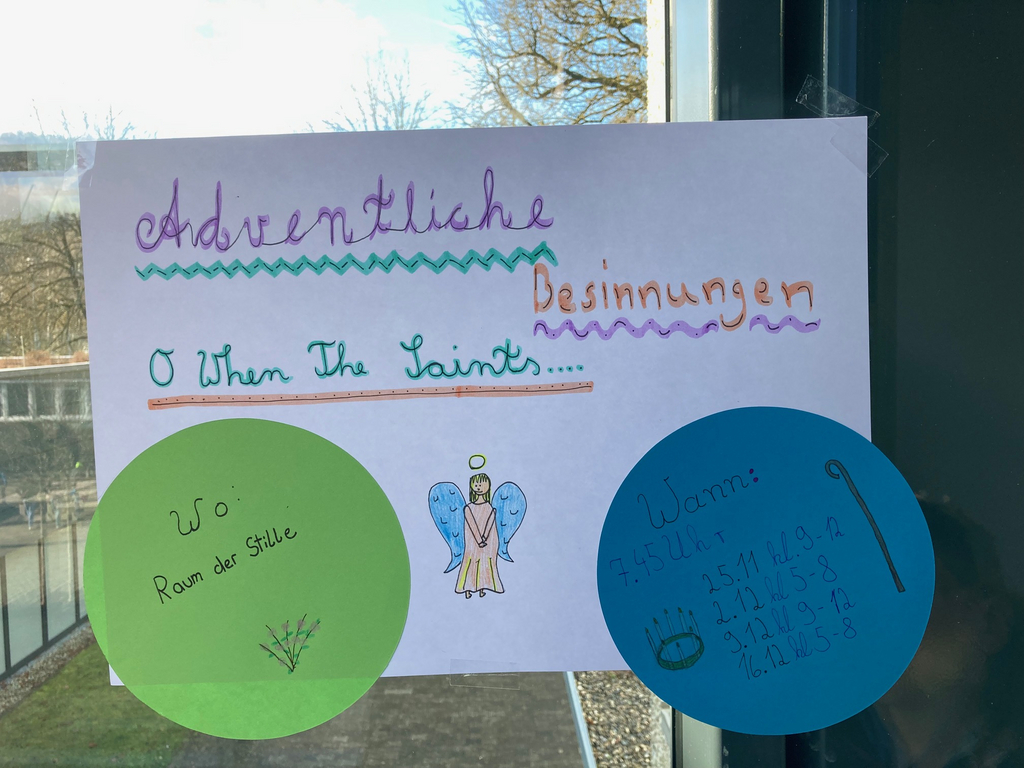 Adventliche
Besinnungen
O When The Saints....
Wo:
Raum der Stille
Wann:
7.45 Uhr
25.11 kl. 9-12
2.12 kl 5-8
9.12 kl 9-12
16.12 kl 5-8